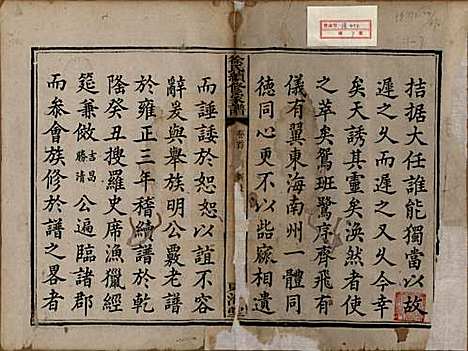 拮据大任誰能獨當以故
遲之又久而遲之又久今幸
矣天誘其靈矣渙然者
之萃矣鴛班鷺序齊飛有
儀有翼東海南州一體同
德同心更不以此廢相遺
卷首
而諈諉於恕恕以誼不容
辭爰與舉族明公覈老譜
於雍正三年稽續譜於乾
隆癸丑搜羅史席漁獵經
筵兼倣吉昌勝清公遍臨諸郡
而參會族修於譜之畧者